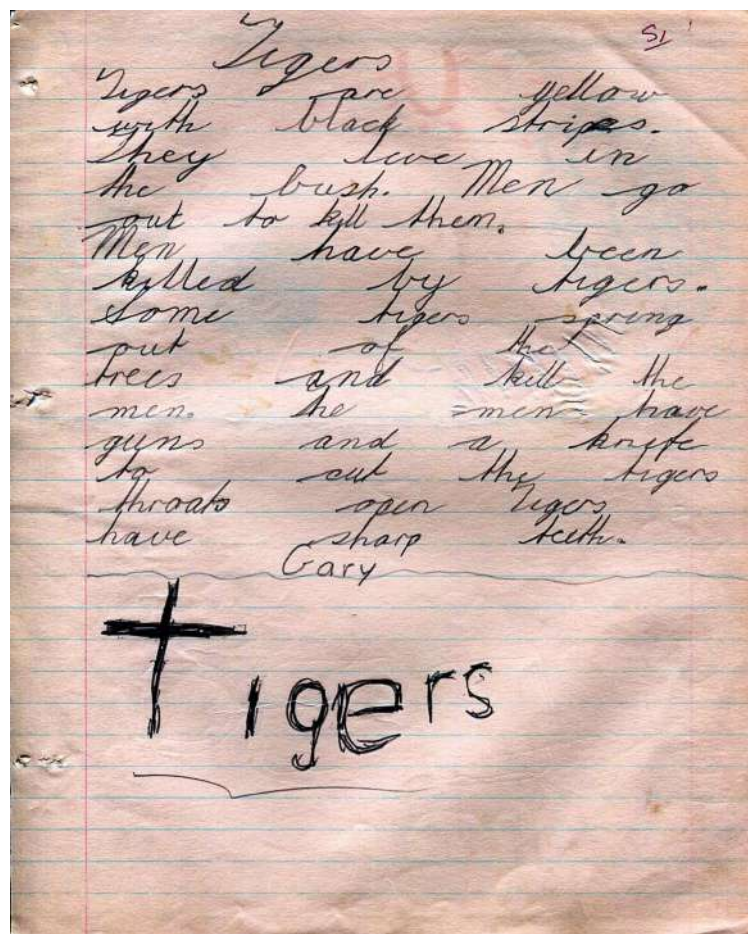 51
Tigers
Tigers are yellow
with black stripes.
They live in
the bush. Men go
out to kill them.
Men have been
killed by tigers.
Some tigers spring
out of the
trees and kill the
men. the men have
guns and a knife
to cut the tigers
throats open Tigers
have sharp teeth.
Gary
Tigers